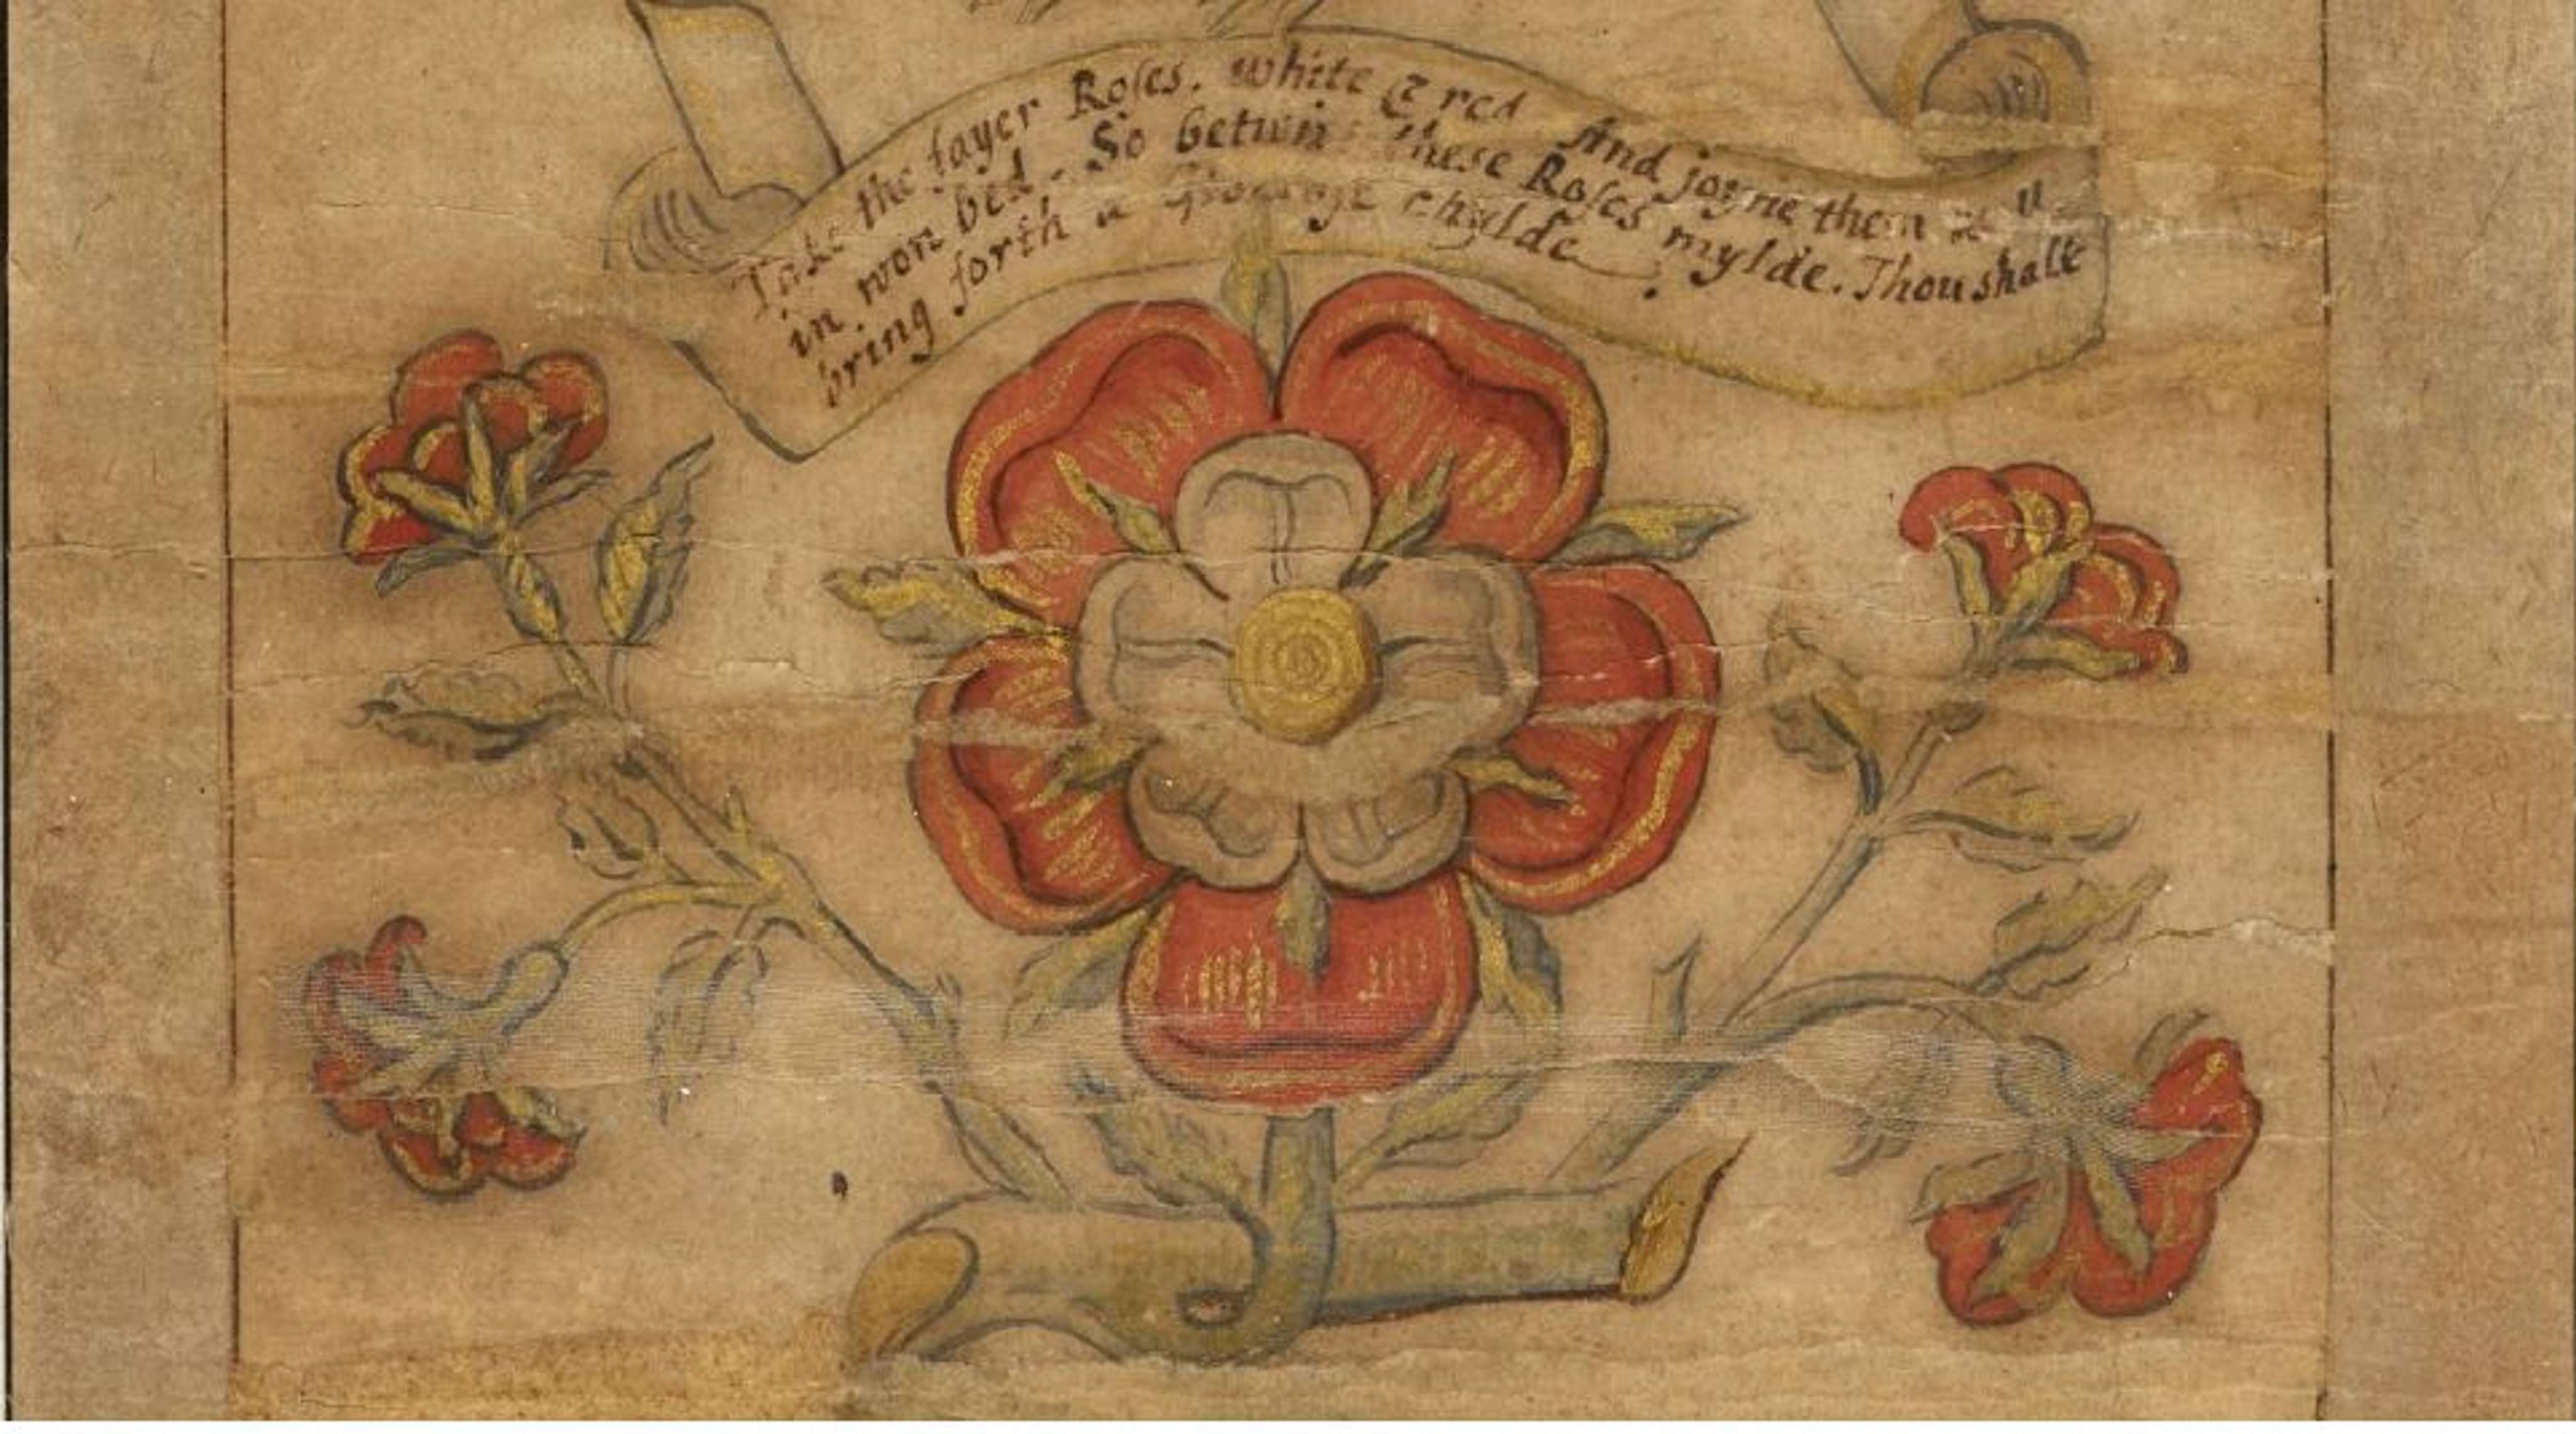 Take the fayer Roses, white & red And joyne them
in won bed. So betwin these Roses mylde. Thou shalt
bring forth a chylde